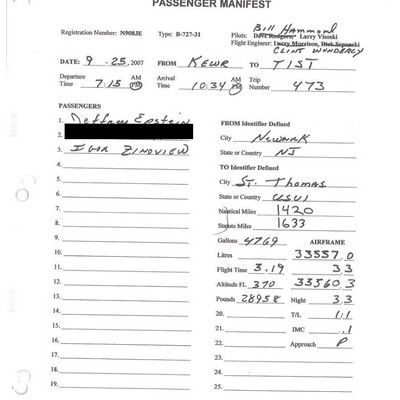 PASSENGER MANIFEST
Bill Hammond
Registration Number: N908JE Type: B-727-31 Pilots: Dave Rodgers, Larry Visoski
Flight Engineer: Larry Morrison,
CLINT
DATE: 9 . 25, 2007 FROM KEWR TO TIST
Departure Time 7:15 AM PM Arrival Time 10:34 AM PM Trip Number 473
PASSENGERS
1. Jeffrey Epstein
FROM Identifier Defined
2.
City Newark
3. IGOR ZINOVIEW
State or Country NJ
4.
TO Identifier Defined
5.
City St. Thomas
6.
State or Country USVI
7.
Nautical Miles 1420
8.
Statute Miles 1633
9.
Gallons 4769 AIRFRAME
10.
Litres 33557.0
11.
Flight Time 3.19 3.3
12.
Altitude FL 370 33560.3
13.
Pounds 28958 Night 3.3
14.
20. T/L 1:1
15.
21. IMC .1
16.
22. Approach P
17.
23.
18.
24.
19.
25.